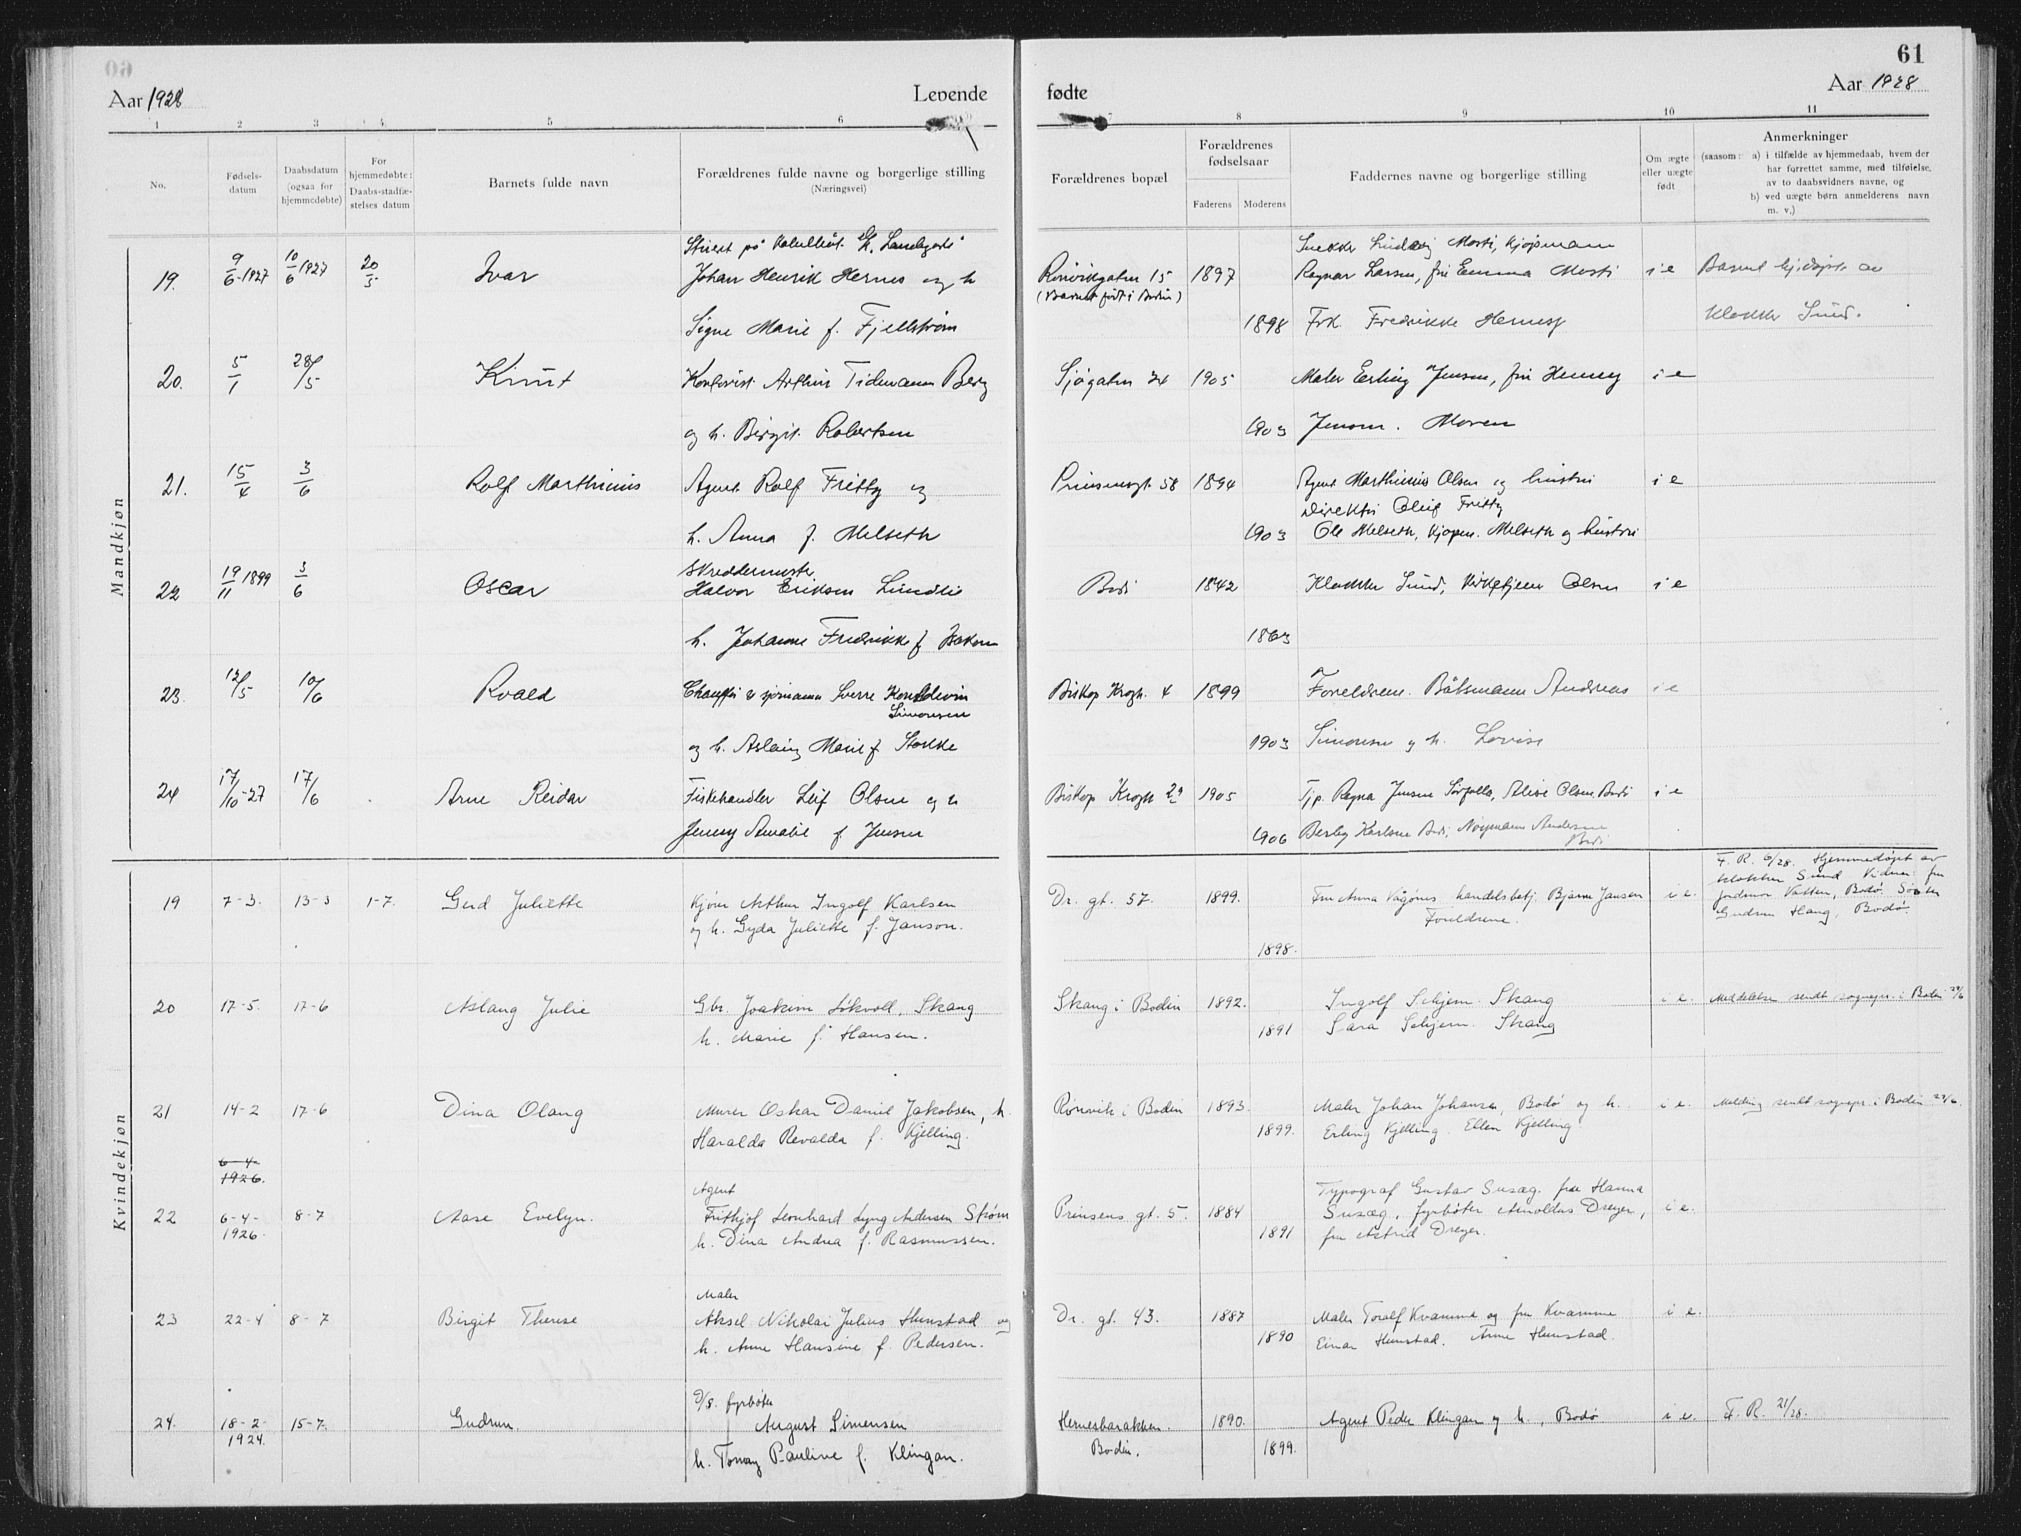 60
Aar 1928
Levende
fødte
61
Aar 1928
1 2 3 4 5 6 7 8 9 10 11
No.
Fødsels-
datum
Daabsdatum
(ogsaa for
hjemmedøbte)
For
hjemmedøbte:
Daabs-stadfæ-
stelses datum
Barnets fulde navn
Forældrenes fulde navne og borgerlige stilling
(Næringsvei)
Forældrenes bopæl
Forældrenes
fødselsaar
Faderens Moderens
Faddernes navne og borgerlige stilling
Om ægte
eller uægte
født
Anmerkninger
(saasom: a) i tilfælde av hjemmedaab, hvem der
har forrettet samme, med tilføielse,
av to daabsvidners navne, og
b) ved uægte børn anmelderens navn
m. v.)
Mandkjøn
19. 9/6-1927 10/6 1927 20/5 Ivar
Johan Henrik Hernes og h
Signe Marie f. Fjellstrøm
Rønvikgaten 15 1897
(Barnet født i Bodin)
1898
Ragnar Larsen, fru Emma Mosti i e
Frk. Fredrikke Hernes
Klokker Sund.
20. 5/1 28/5 Knut
Arthur Tidemann Berg
og h. Birgit Robertsen
Sjøgaten 24 1905
1903
Maler Erling Jensen, fru Henny i e
Jensen. Moren
21. 15/4 3/6 Rolf Marthinius
Agent Rolf Fritty og
h. Anna f. Melseth
Prinsensgt. 58 1894
1903
Agent Marthinius Olsen og hustru i e
Direktør Oluf Fritty
Ole Melseth, kjøpm. Melseth og hustru
22 19/11 1899 3/6 Oscar
Skreddermester
Halvor Eriksen Lundli
h. Johanne Fredrikke f.
Bodø 1842
1863
Klokker Sund, kirketjener Olsen i e
23. 12/5 10/6 Roald
Sverre
Simonsen
og h. Aslaug Marie f. Stokke
Biskop Krogh. 4 1899
1903
Foreldrene. Båtsmann Andreas i e
Simonsen og h. Lovise
24 17/10-27 17/6 Arne Reidar
Fiskehandler Leif Olsen og h
Jenny Amalie f. Jensen
Biskop Krogh 29 1905
1906
Tjp. Ragna Jensen Sørfolla, Alise Olsen Bodø i e
Karlsen Bodø, Andersen
Bodø
Kvindekjøn
19 7-3. 13-3 1-7. Gerd Juliette
Arthur Ingolf Karlsen
og h. Gyda Juliette f. Janson.
Dr. gt. 57. 1899.
1898.
Fru Anna Vågønes, handelsbetj. Bjarne Jansen i e.
Foreldrene.
F. R. 6/28. Hjemmedøpt av
klokker Sund. Vidner: fru
jordmor Vatten, Bodø. Søster
Gudrun Haug, Bodø.
20 17-5. 17-6 Aslaug Julie
Gbr. Joakim Løkvold, Skaug
h. Marie f. Hansen.
Skaug i Bodin 1892.
1891
Ingolf Schjem. Skaug i e.
Sara Schjem. Skaug
Meddelelse sendt sognepr. i Bodin 29/6
21 14-2 17-6 Dina Olaug
Murer Oskar Daniel Jakobsen, h.
Haralda Revalda f. Kjelling.
Rønvik i Bodin 1893.
1899.
Maler Johan Johansen, Bodø og h. i e.
Erling Kjelling. Ellen Kjelling
Melding sendt sognepr. i Bodin 29/6.
6-4-
1926.
22 6-4-
1926. 8-7 Aase Evelyn.
Agent
Frithjof Leonhard Lyng Andersen Strøm
h. Dina Andrea f. Rasmussen.
Prinsens gt. 5. 1884
1891
Typograf Gustav Susæg, fru Hanna
Susæg, fyrbøter Arnoldus Dreyer, i e.
fru Astrid Dreyer.
23 22-4 8-7 Birgit Therese
Maler
Aksel Nikolai Julius Hunstad og
h. Anne Hansine f. Pedersen.
Dr. gt. 43. 1887
1890
Maler Toralf Kvamme og fru Kvamme i e.
Einar Hunstad. Arne Hunstad.
24. 18-2-
1924. 15-7. Gudrun.
D/S. fyrbøter
August Simensen
h. Tonny Pauline f. Klingan.
Hernesbarakken. 1890.
Bodin. 1899.
Agent Peder Klingan og h., Bodø i e. F. R. 21/28.